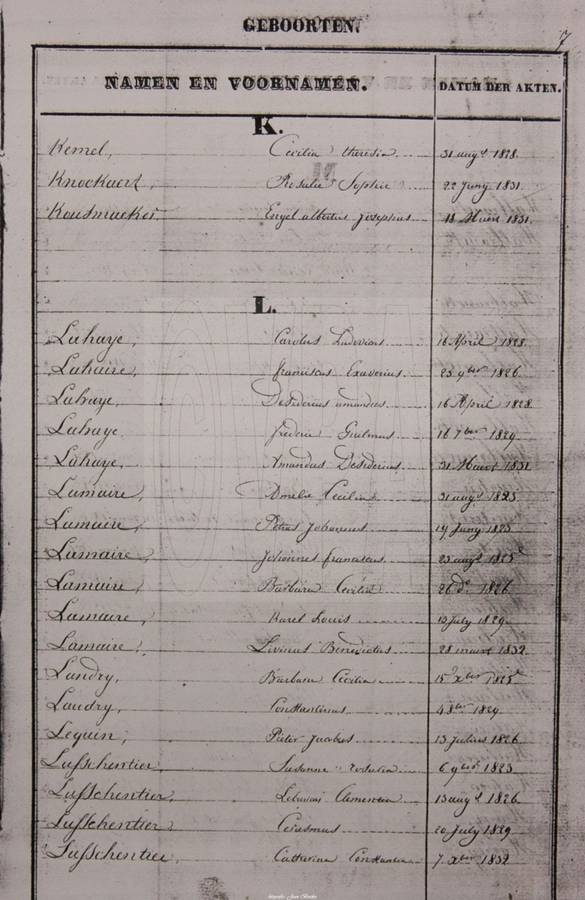 GEBOORTEN.
7
NAMEN EN VOORNAMEN. DATUM DER AKTEN.
K.
Kemel, Cecilia theresia 31 augt 1828
Knockaert, Rosalie Sophie 22 Juny 1831
Engel albertus Josephus 18 Maert 1831.
L.
Lahaye, Carolus Ludovicus 16 April 1828
Lahaire, franciscus Exaverius. 23 9ber 1826
Lahaye, Desiderius amandus 16 April 1828
Lahaye Frederic Guilmus 16 7ber 1829
Lahaye, Amandus Desiderius 31 Maart 1831
Lamaire, Amelie Cecilia 31 augt 1823
Lamaire, Petrus Johannes 19 Juny 1825
Lamaire, Johannes franciscus 23 augt 1825
Lamaire, Barbara Cecilia 26 do 1826
Lamaire, Karel Louis 13 July 1829
Lamaire, Livinus Benedictus 28 maart 1832
Landry, Barbara Cecilia 15 xber 1825
Landry, Constantinus 4 8ber 1829
Lequin, Pieter Jacobus 13 Julius 1826
Lusschentier, Susanne rosalia 6 9ber 1823
Lusschentier, Clementia 13 augt 1826
Lusschentier, Erasmus 20 July 1829
Lusschentier, Catharina Constantia 7 xber 1832